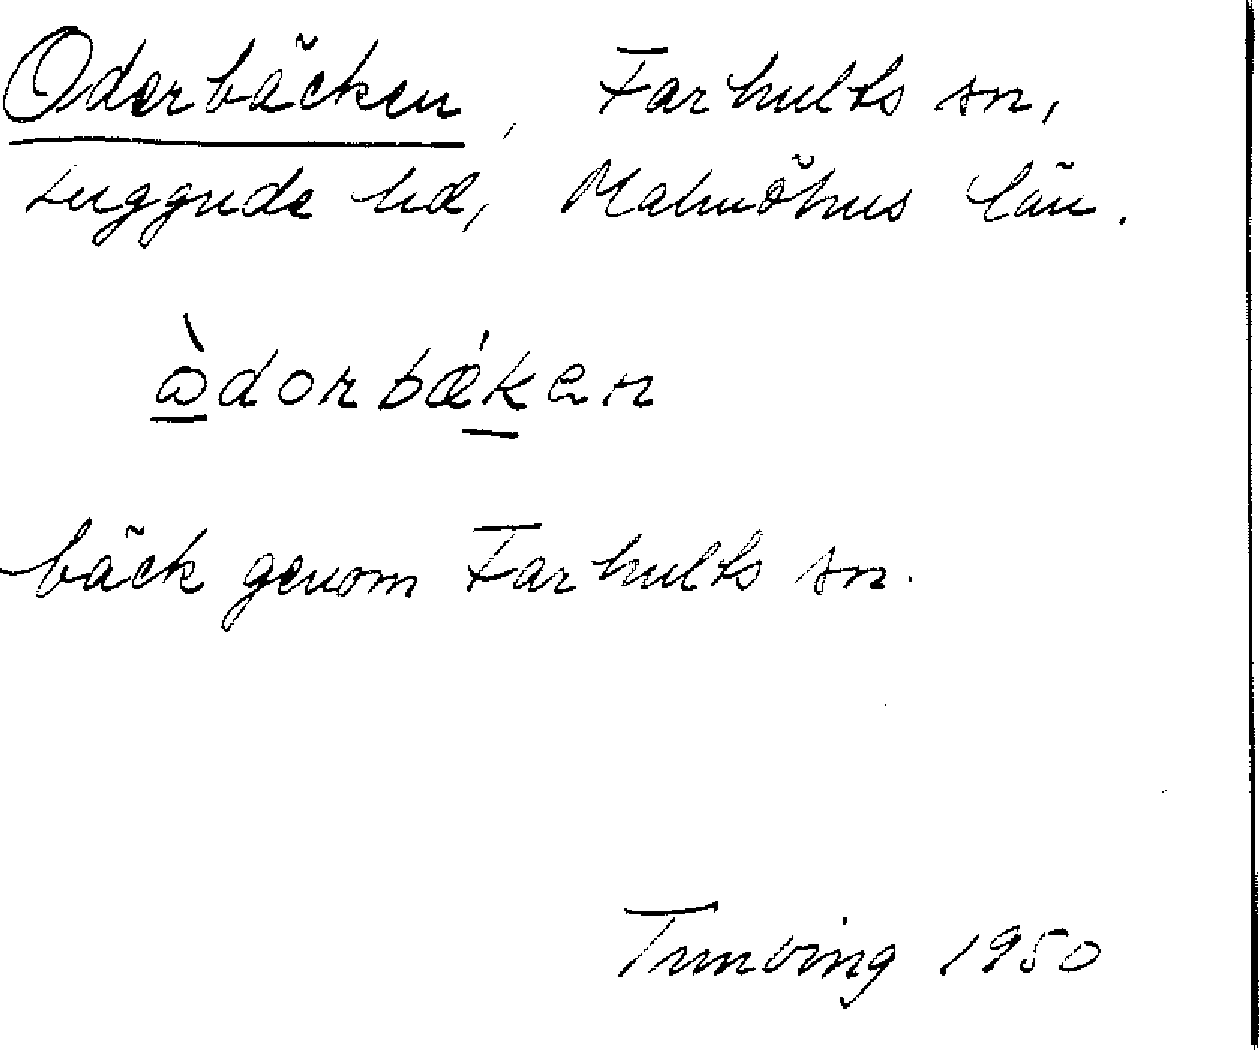 Oderbäcken, Farhults sn,
Luggude hd, Malmöhus län.
òdorbǽken
bäck genom Farhults sn.
Tunving 1950